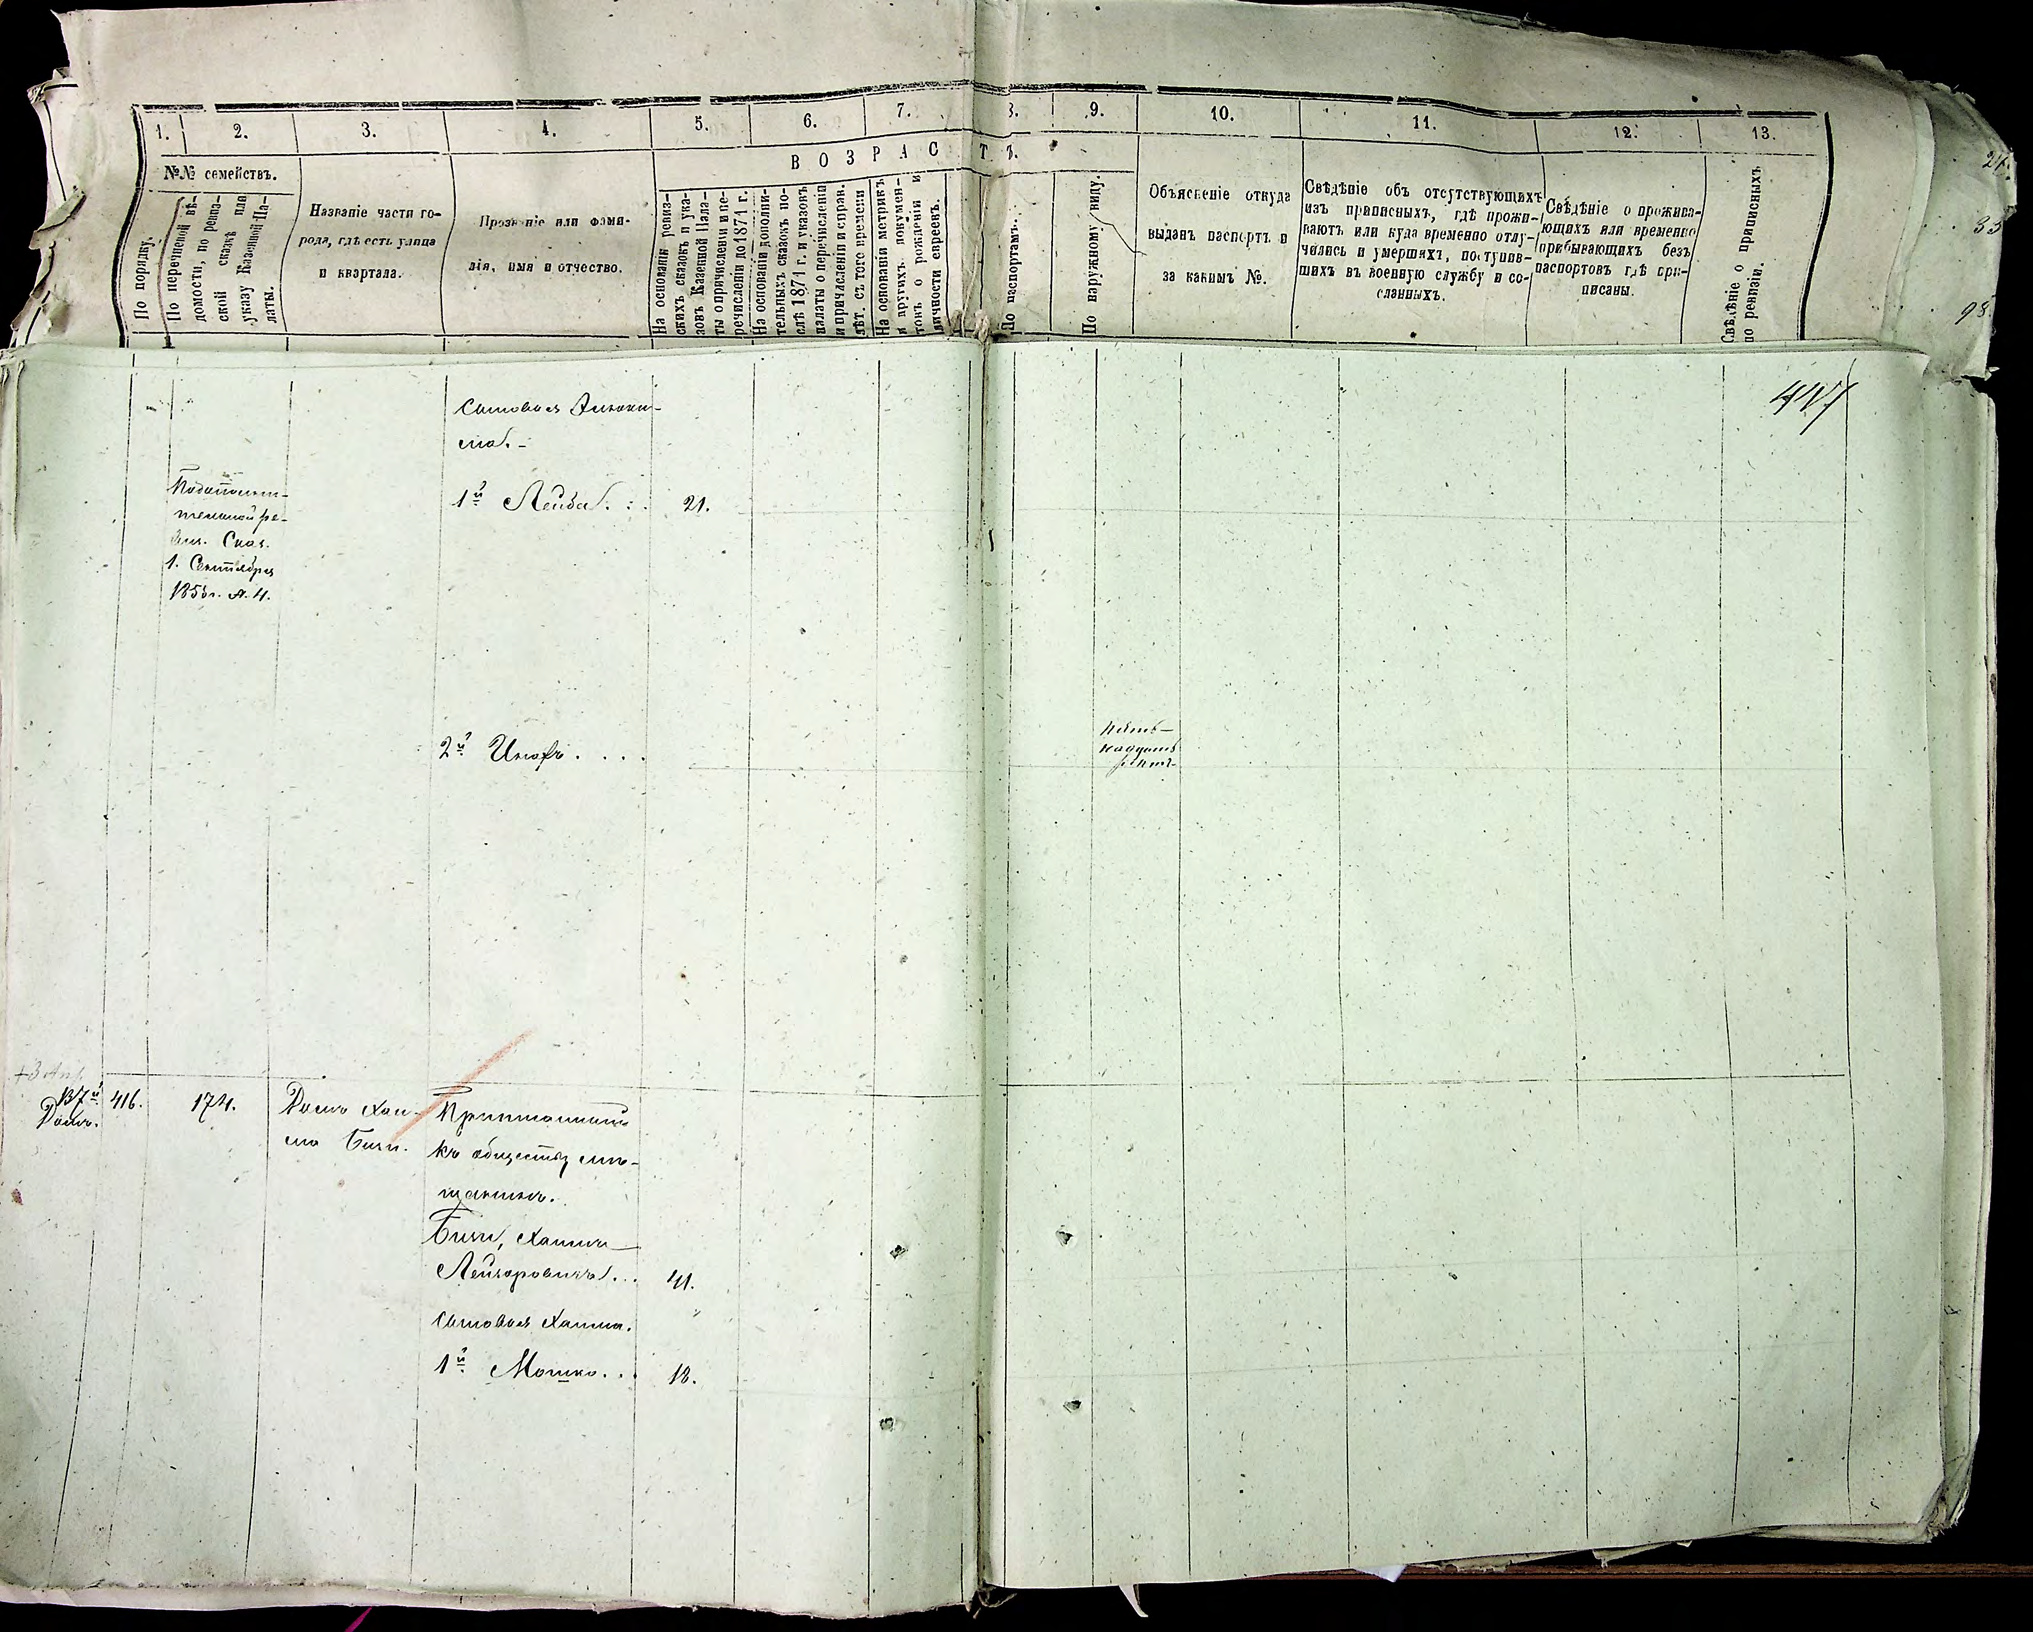 1. 2. 3. 4. 5. 6. 7. 8. 9. 10. 11. 12. 13.
В О З Р А С Т Ъ.
№№ семействъ.
По порядку.
По перечневой вѣ-
домости, по ревиз-
ской сказкѣ или
указу Казенной Па-
латы.
Названіе части го-
рода, гдѣ есть улица
и квартала.
Прозваніе или фами-
лія, имя и отчество.
На основаніи ревиз-
скихъ сказокъ и ука-
зовъ Казенной Пала-
ты о причисленіи и пе-
речисленіи до 1871 г.
На основаніи дополни-
тельныхъ сказокъ по-
слѣ 1871 г. и указовъ
палаты о перечисленіи
и причисленіи и справ.
лѣт. съ того времени
На основаніи метрикъ
и другихъ докумен-
товъ о рожденіи и
личности евреевъ.
По паспортамъ.
По наружному виду.
Объясненіе откуда
выданъ паспортъ и
за какимъ №.
Свѣдѣніе объ отсутствующихъ
изъ приписныхъ, гдѣ прожи-
ваютъ или куда временно отлу-
чились и умершихъ, поступив-
шихъ въ военную службу и со-
сланныхъ.
Свѣдѣніе о прожива-
ющихъ или временно
прибывающихъ безъ
паспортовъ гдѣ при-
писаны.
Свѣдѣніе о приписныхъ
по ревизіи.
98.
Сыновья
1й Лейба. : . 21.
ре-
виз. Сказ.
1. Сентября
2й . . . .
Пят-
надцать
лѣтъ
137й
Домъ.
416. 174.
Домъ Хаи-
ма Бичи.
къ обществу мѣ-
щанинъ.
Бичи, Хаимъ
Лейзоровичъ . . . 41.
Сыновья Хаима. "
1й Мошко. . . 18.